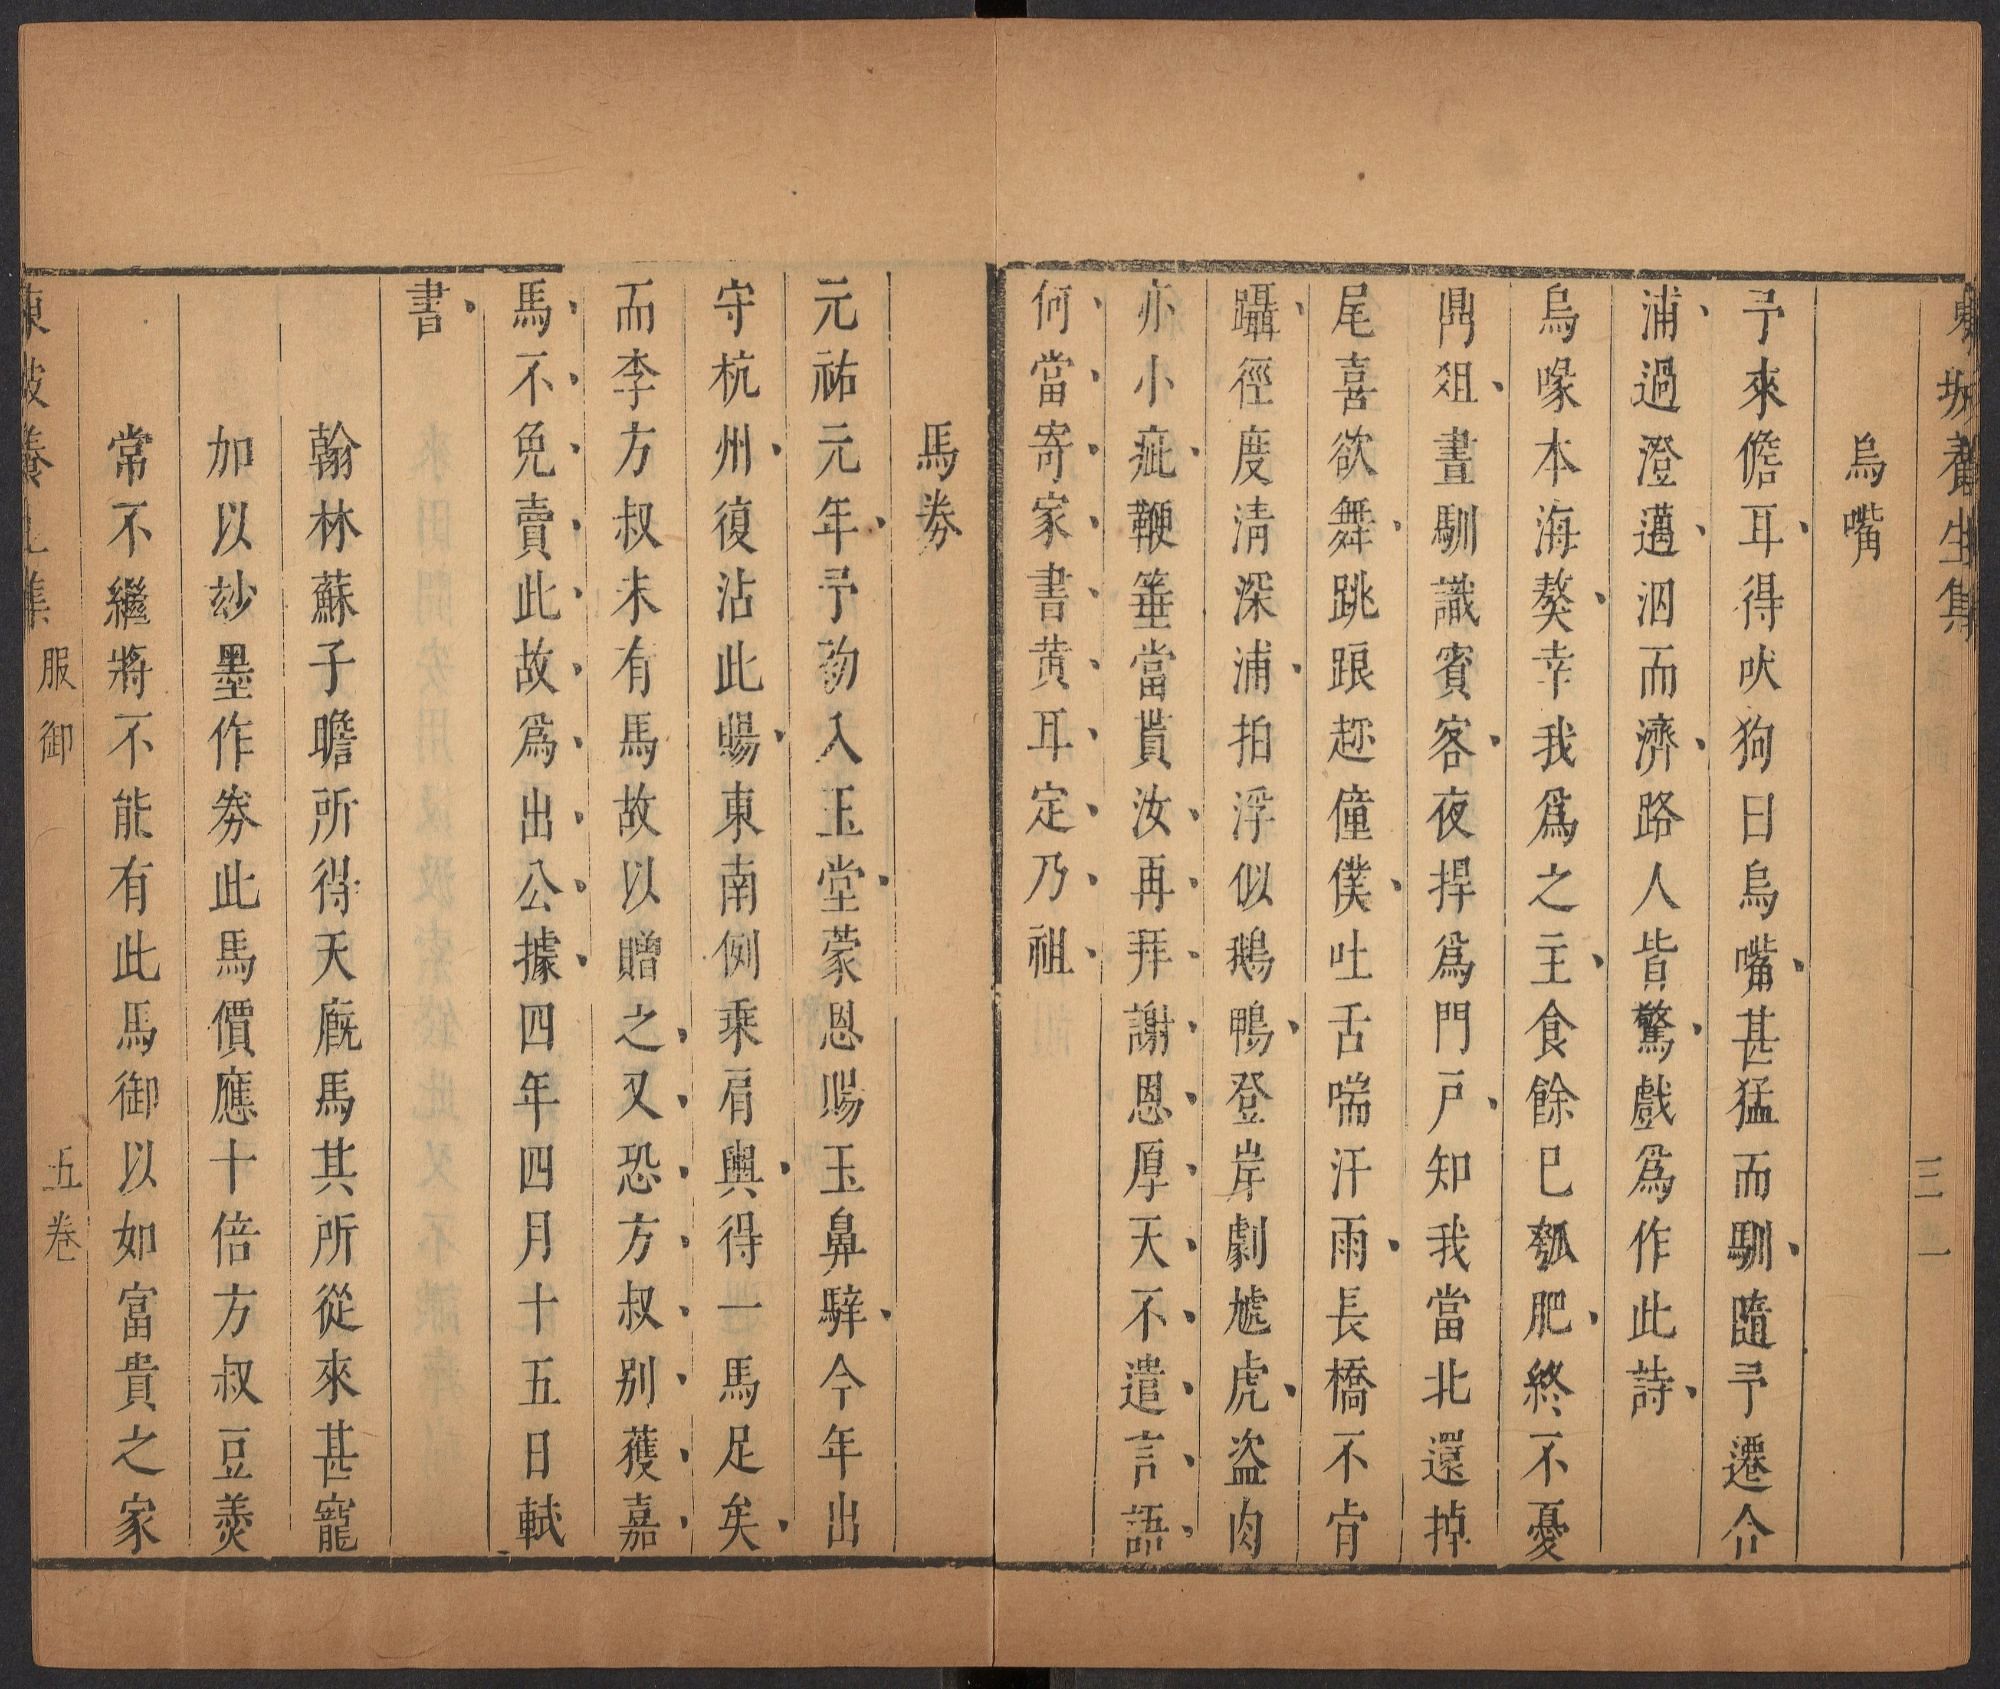 東坡養生集
三一
烏嘴
予來儋耳得吠狗曰烏嘴甚猛而馴隨予遷合
浦過澄邁泅而濟路人皆驚戲爲作此詩
烏喙本海獒幸我爲之主食餘已瓠肥終不憂
鼎俎晝馴識賓客夜捍爲門戸知我當北還掉
尾喜欲舞跳踉趂僮僕吐舌喘汗雨長橋不肯
躡徑度清深浦拍浮似鵝鴨登岸劇虓虎盜肉
亦小疵鞭箠當貰汝再拜謝恩厚天不遣言語
何當寄家書黃耳定乃祖
馬券
元祐元年予初入玉堂蒙恩賜玉鼻騂今年出
守杭州復沾此賜東南例乘肩輿得一馬足矣
而李方叔未有馬故以贈之又恐方叔別獲嘉
馬不免賣此故爲出公據四年四月十五日軾
書
翰林蘇子瞻所得天廐馬其所從來甚寵
加以玅墨作券此馬價應十倍方叔豆羹
常不繼將不能有此馬御以如富貴之家
東坡養生集
服御
五卷